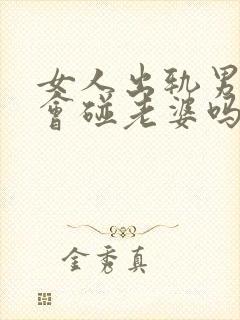 女人出轨男
會碰老婆吗
金秀真